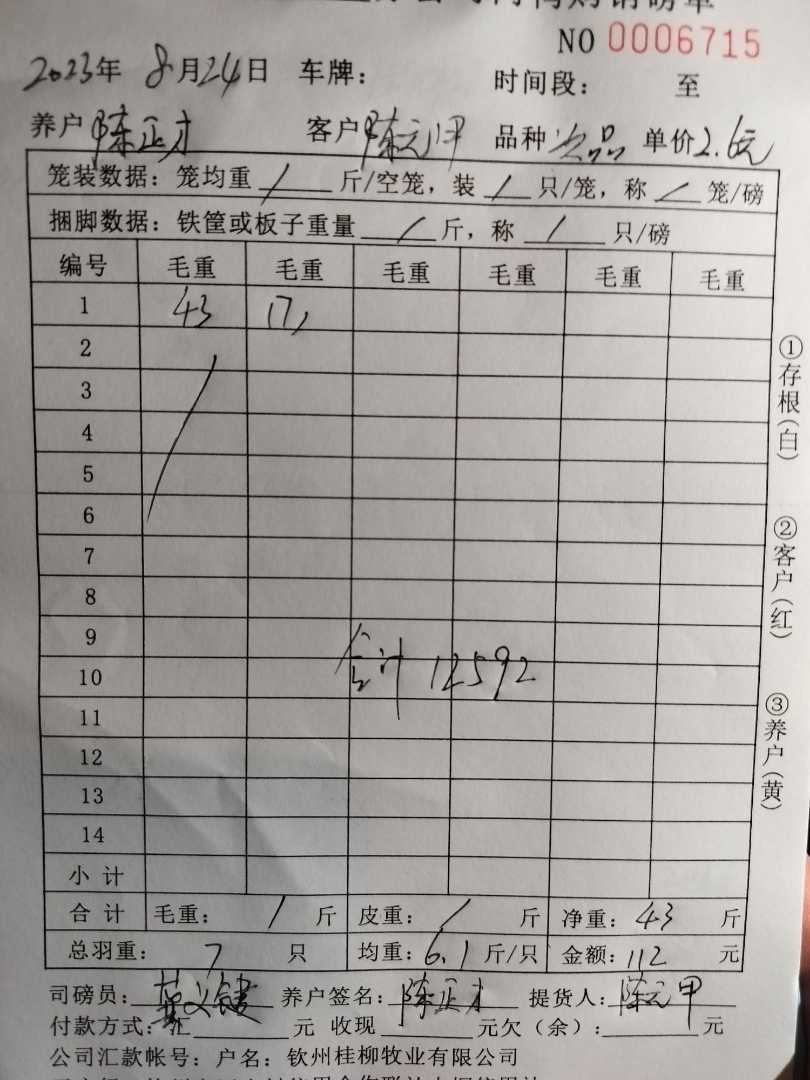 NO 0006715
2023年 8月24日 车牌： 时间段： 至
养户 陈正才 客户 陈元甲 品种 次品 单价2.6元
笼装数据：笼均重 / 斤/空笼，装 / 只/笼，称 / 笼/磅
捆脚数据：铁筐或板子重量 / 斤，称 / 只/磅
编号 毛重 毛重 毛重 毛重 毛重 毛重
1 43 17,
2
3
4
5
6
7
8
9
合计 12592
10
11
12
13
14
小 计
合 计 毛重： / 斤 皮重： / 斤 净重：43 斤
总羽重： 7 只 均重：6.1 斤/只 金额：112 元
司磅员： 养户签名：陈正才 提货人：陈元甲
付款方式：汇 元 收现 元欠（余）： 元
公司汇款帐号：户名：钦州桂柳牧业有限公司
①存根(白)
②客户(红)
③养户(黄)